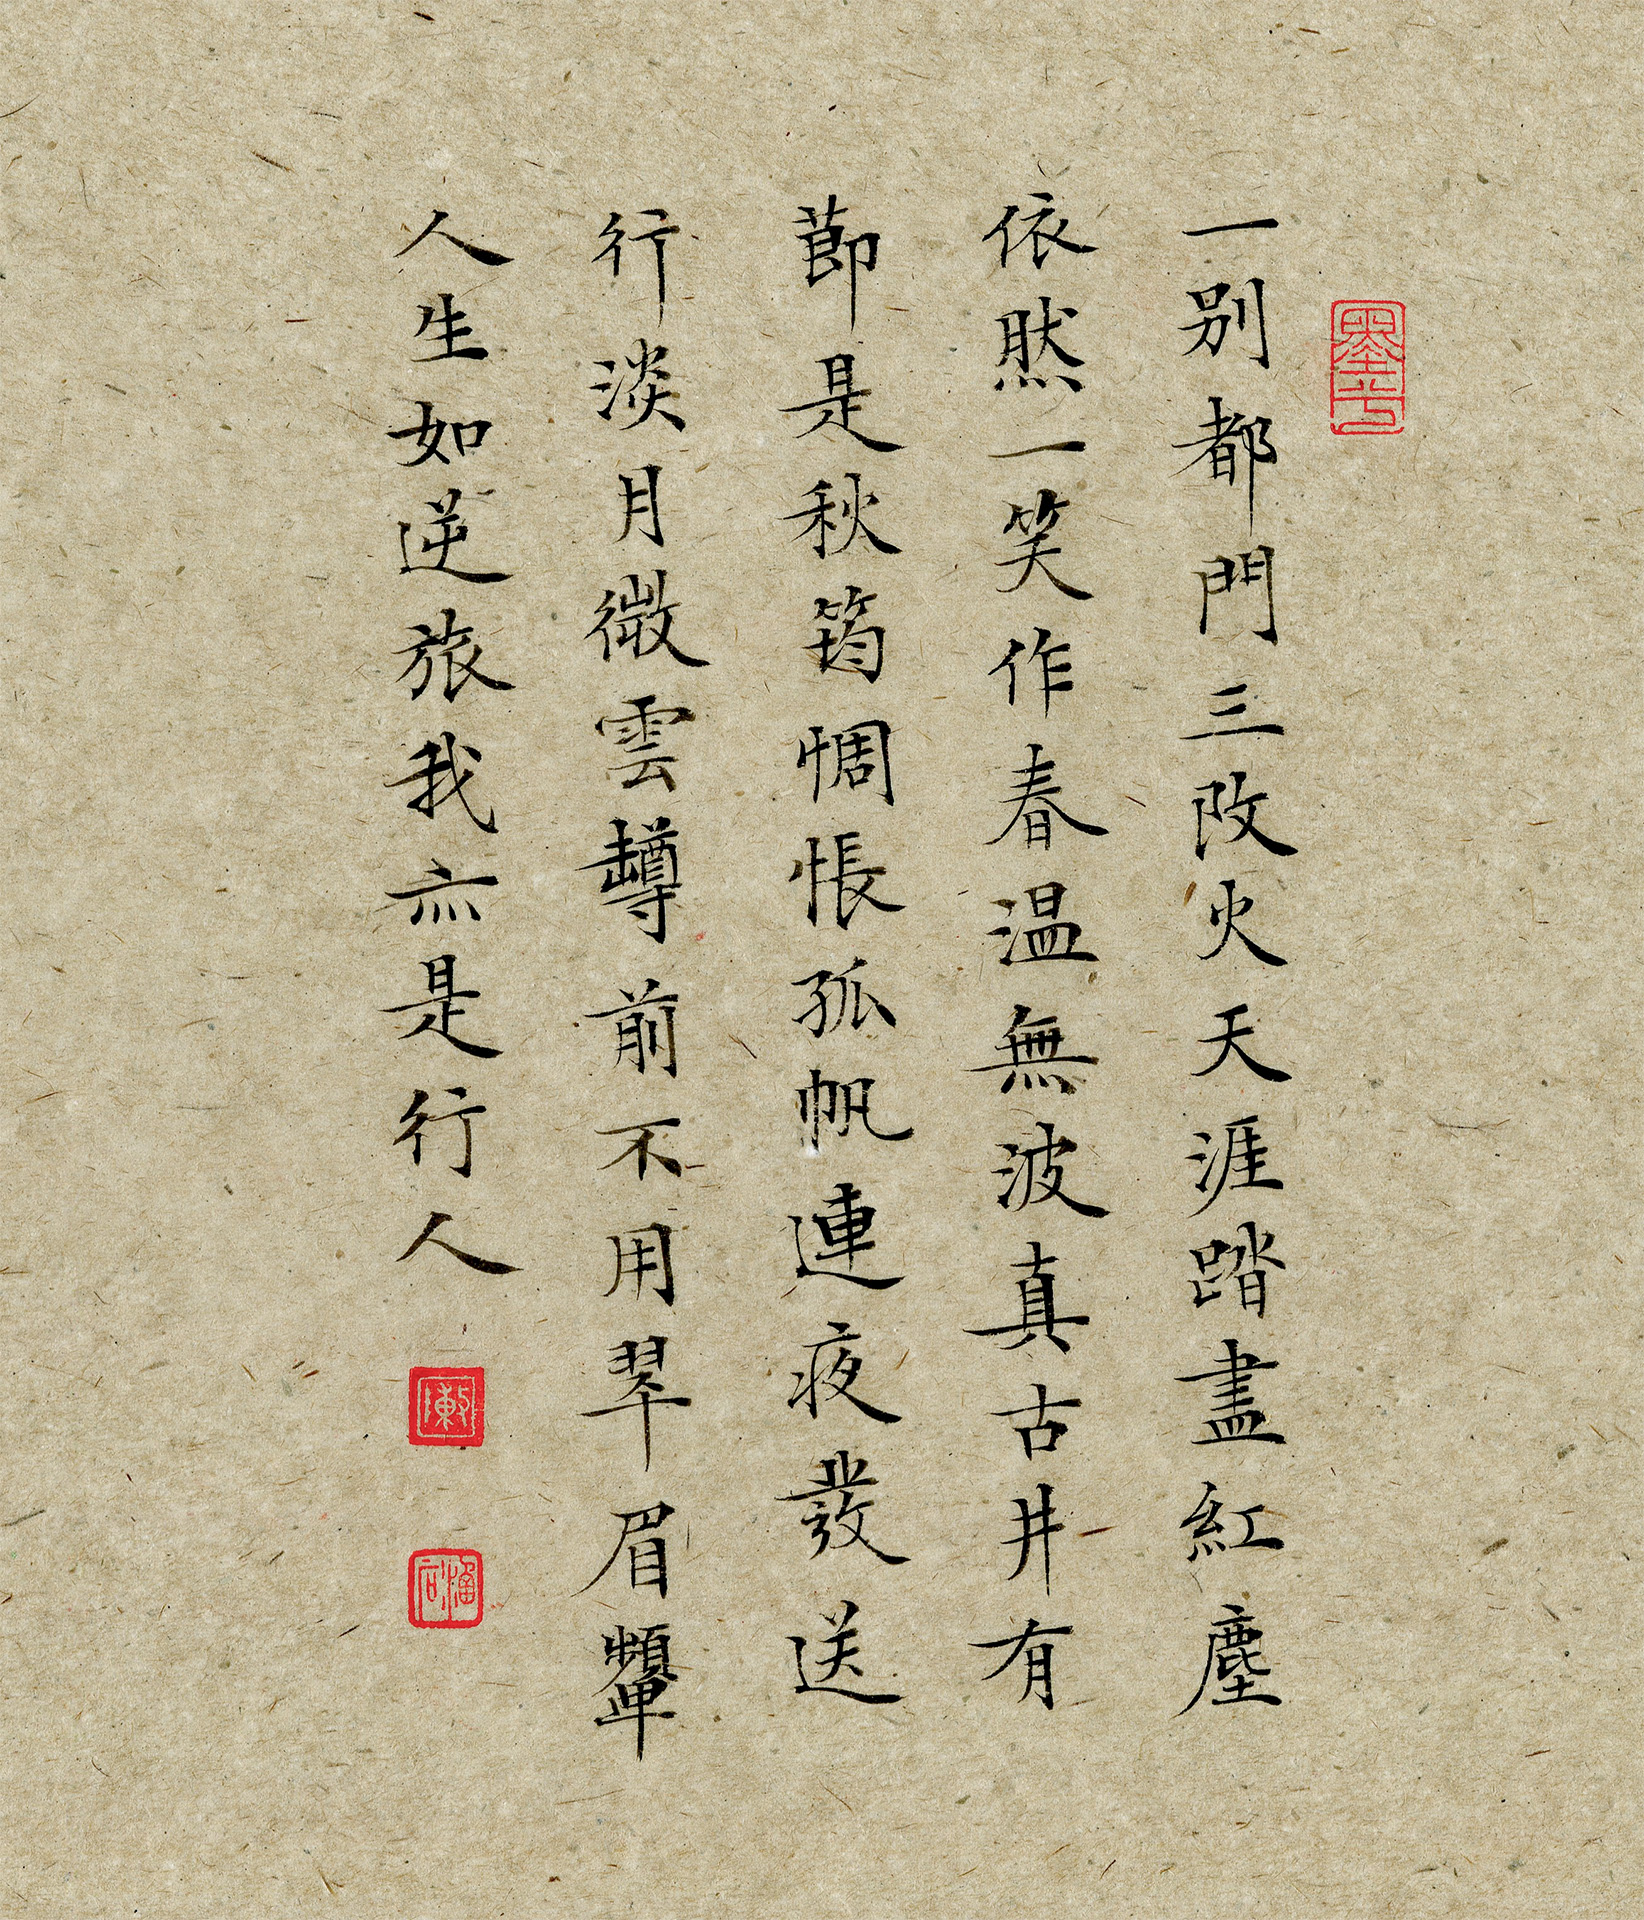 一别都門三改火天涯踏盡紅塵
依然一笑作春温無波真古井有
節是秋筠惆悵孤帆連夜發送
行淡月微雲罇前不用翠眉顰
人生如逆旅我亦是行人